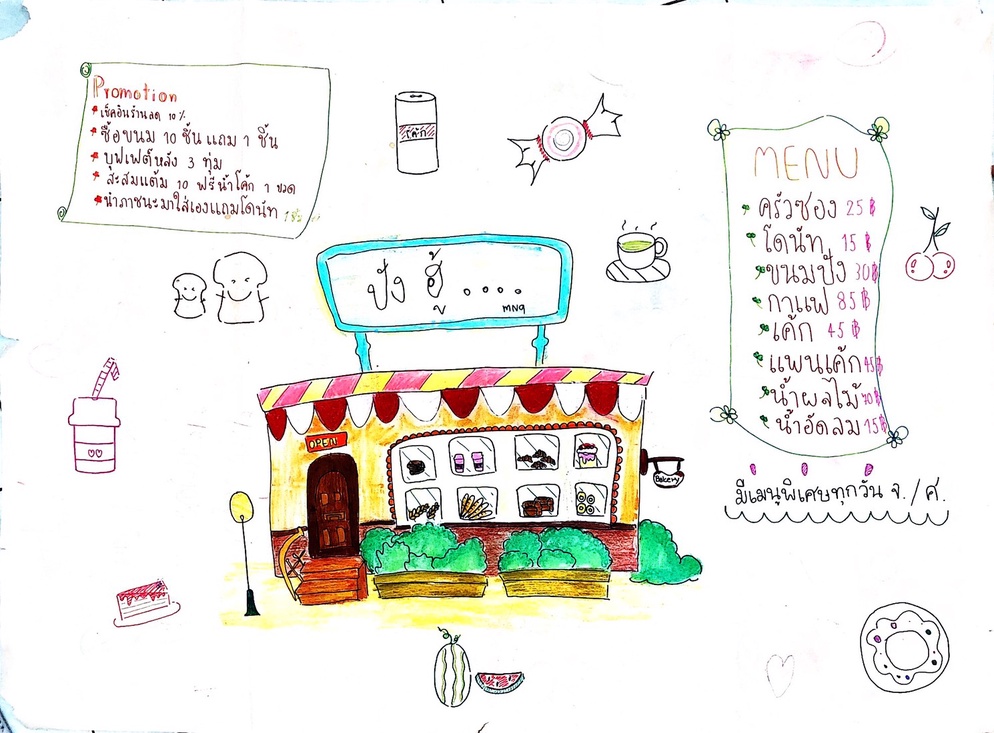 Promotion
เช็คอินร้านลด 10%
ซื้อขนม 10 ชิ้น แถม 1 ชิ้น
บุฟเฟต์หลัง 3 ทุ่ม
สะสมแต้ม 10 ฟรีน้ำโค้ก 1 ขวด
นำภาชนะมาใส่เองแถมโดนัท
โค้ก
ปัง ฮู้ ....
MNQ
OPEN
Bakery
MENU
ครัวซอง 25 ฿
โดนัท 15 ฿
ขนมปัง 30฿
กาแฟ 85฿
เค้ก 45 ฿
แพนเค้ก 45฿
น้ำผลไม้ 70฿
น้ำอัดลม 15฿
มีเมนูพิเศษทุกวัน จ. / ศ.